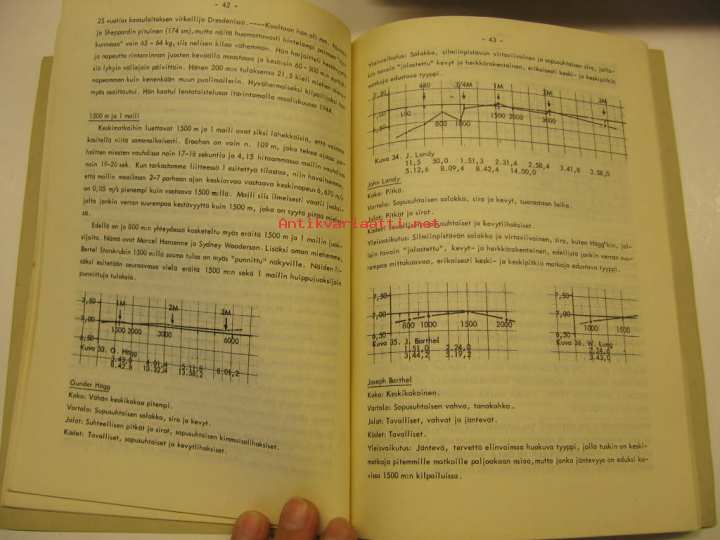 - 42 -
25 vuotias konsulaatoksen virkailija Dresdenissa.
ja Sheppardin pituinen (174 cm), mutta näitä huomattavasti hintelompi
kunnossa" vain 63 - 64 kg, siis nelisen kiloa vähemmän. Hän harjoitteli
ja nopeutta rintamminan juosten keväällä maastossa ja kesäisin 60 - 300 m:n
siä lyhyin väliajoin päivittäin. Hänen 200 m:n tuloksensa 21,5 kieli miehen
nopeamman kuin kenenkään muun puolimailerin.
myös osoittautui. Hän kaatui lentotaistelussa itärintamalla maaliskuussa 1944.
1500 m ja 1 maili
Keskimatkoihin luettavat 1500 m ja 1 maili ovat siksi lähekkäisiä, että voimme
käsitellä niitä samanaikaisesti. Eroahan on vain n. 109 m, joka tekee
miesten vauhdissa noin 17-18 sekuntia ja 4,15 hitaammassa mailin vauhdissa
noin 19-20 sek. Kun tarkastamme liitteessä 1 esitettyä tilastoa, niin havaitsemme,
että mailin maailman 2-7 parhaan ajan keskiarvoa vastaava keskinopeus 6,670 m/s
on 0,05 m/s pienempi kuin vastaava 1500 m:llä. Maili siis ilmeisesti vaatii
jolta jonkin verran suurempaa kestävyyttä kuin 1500 m, joka on syytä pitää
sä.
Edellä on jo 800 m:n yhteydessä kosketeltu myös eräitä 1500 m ja 1 mailin
sijoita. Nämä ovat Marcel Hansenne ja Sydney Wooderson. Lisäksi oman miehemme,
Bertel Storskrubin 1500 m:llä saama tulos on myös "punnittu" näkyville. Näiden
säksi esitetään seuraavassa vielä eräitä 1500 m:n sekä 1 mailin huippujuoksijoita
punnittuja tuloksia.
7,50
1M
2M
3M
7,00
1500 2000
3000
6000
6,50
Kuva 33. G. Hägg
Gunder Hägg
Koko: Vähän keskikokoa pitempi.
Vartalo: Sopusuhtaisen solakka, siro ja kevyt.
Jalat: Suhteellisen pitkät ja sirot, sopusuhtaisen kimmoisalihaksiset.
Kädet: Tavalliset, sopusuhtaiset ja kevytlihaksiset.
- 43 -
Yleisvaikutus: Solakka, silmiinpistävän virtaviivainen ja sopusuhtainen siro,
kin tavoin "jalostettu" kevyt ja herkkärakenteinen, erikoisesti keski- ja keskipitkiä
matkoja edustava tyyppi.
7,50
480
3/4M
1M
2M
3M
7,00
100
800
1000
1500
2000
3000
6,50
Kuva 34. J. Landy
51,5 50,0 1.51,3 2.31,4 2.58,4 3.41,8 3.58,0
5.12,6 8.09,4 8.42,4 14.00,0
John Landy
Koko: Pitkä.
Vartalo: Sopusuhtaisen solakka, siro ja kevyt, suorastaan laiha.
Jalat: Pitkät ja sirot.
sopusuhtaiset ja kevytlihaksiset.
Yleisvaikutus: Silmiinpistävän solakka ja virtaviivainen, siro, kuten Hägg'kin,
lain tavoin "jalostettu", kevyt- ja herkkärakenteinen, edellistä jonkin verran
rempaa mittakaavaa, erikoisesti keski- ja keskipitkiä matkoja edustava tyyppi.
7,50
7,00
800 1000
1500
2000
6,50
Kuva 35. J. Barthel
1.51,0 2.24,0
3.44,2 5.19,2
7,50
7,00
1000
1500
6,50
Kuva 36. W. Lueg
2.24,8
3.43,0
Joseph Barthel
Koko: Keskikokoinen.
Vartalo: Sopusuhtaisen vahva, tanakahko.
Jalat: Tavalliset, vahvat ja jäntevät.
Kädet: Tavalliset.
Yleisvaikutus: Jäntevä, tervettä elinvoimaa huokuva tyyppi, jolla tuskin on keski-
matkoja pitemmille matkoille paljoakaan asiaa, mutta jonka jäntevyys on eduksi ko-
vissa 1500 m:n kilpailuissa.
Antikvariaatti.net